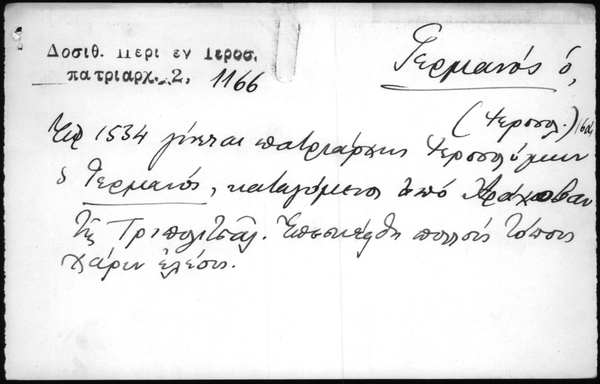 Δοσιθ. Περι εν Ιεροσ.
πατριαρχ. 2, 1166
Γερμανός ὁ,
(Ἱεροσολ.)
Τῷ 1534 γίνεται πατριάρχης Ἱεροσολύμων
ὁ Γερμανός, καταγόμενος ἀπό Ἀράχοβαν
τῆς Τριπολιτσᾶς. Ἐπεσκέφθη πολλούς τόπους
χάριν ἐλέους.